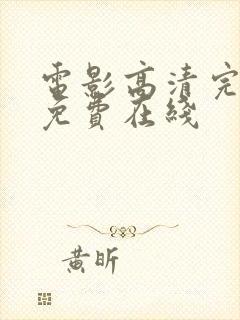 電影高清完
免費在綫
黃昕